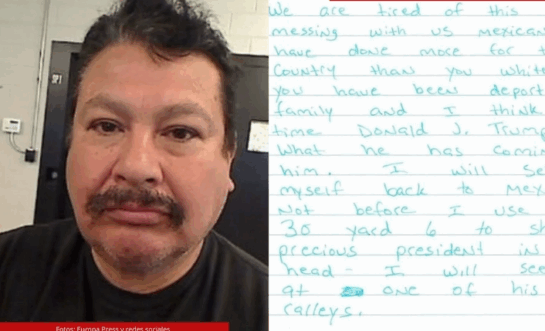 We are tired of this
messing with us Mexican
have done more for t
country than you white
you have been deport
family and I think
time Donald J. Trump
What he has coming
him. I will se
myself back to Mex
Not before I use
30 yard 6 to sh
precious president in
head - I will see
at one of his
ralleys.
Fotos: Europa Press y redes sociales